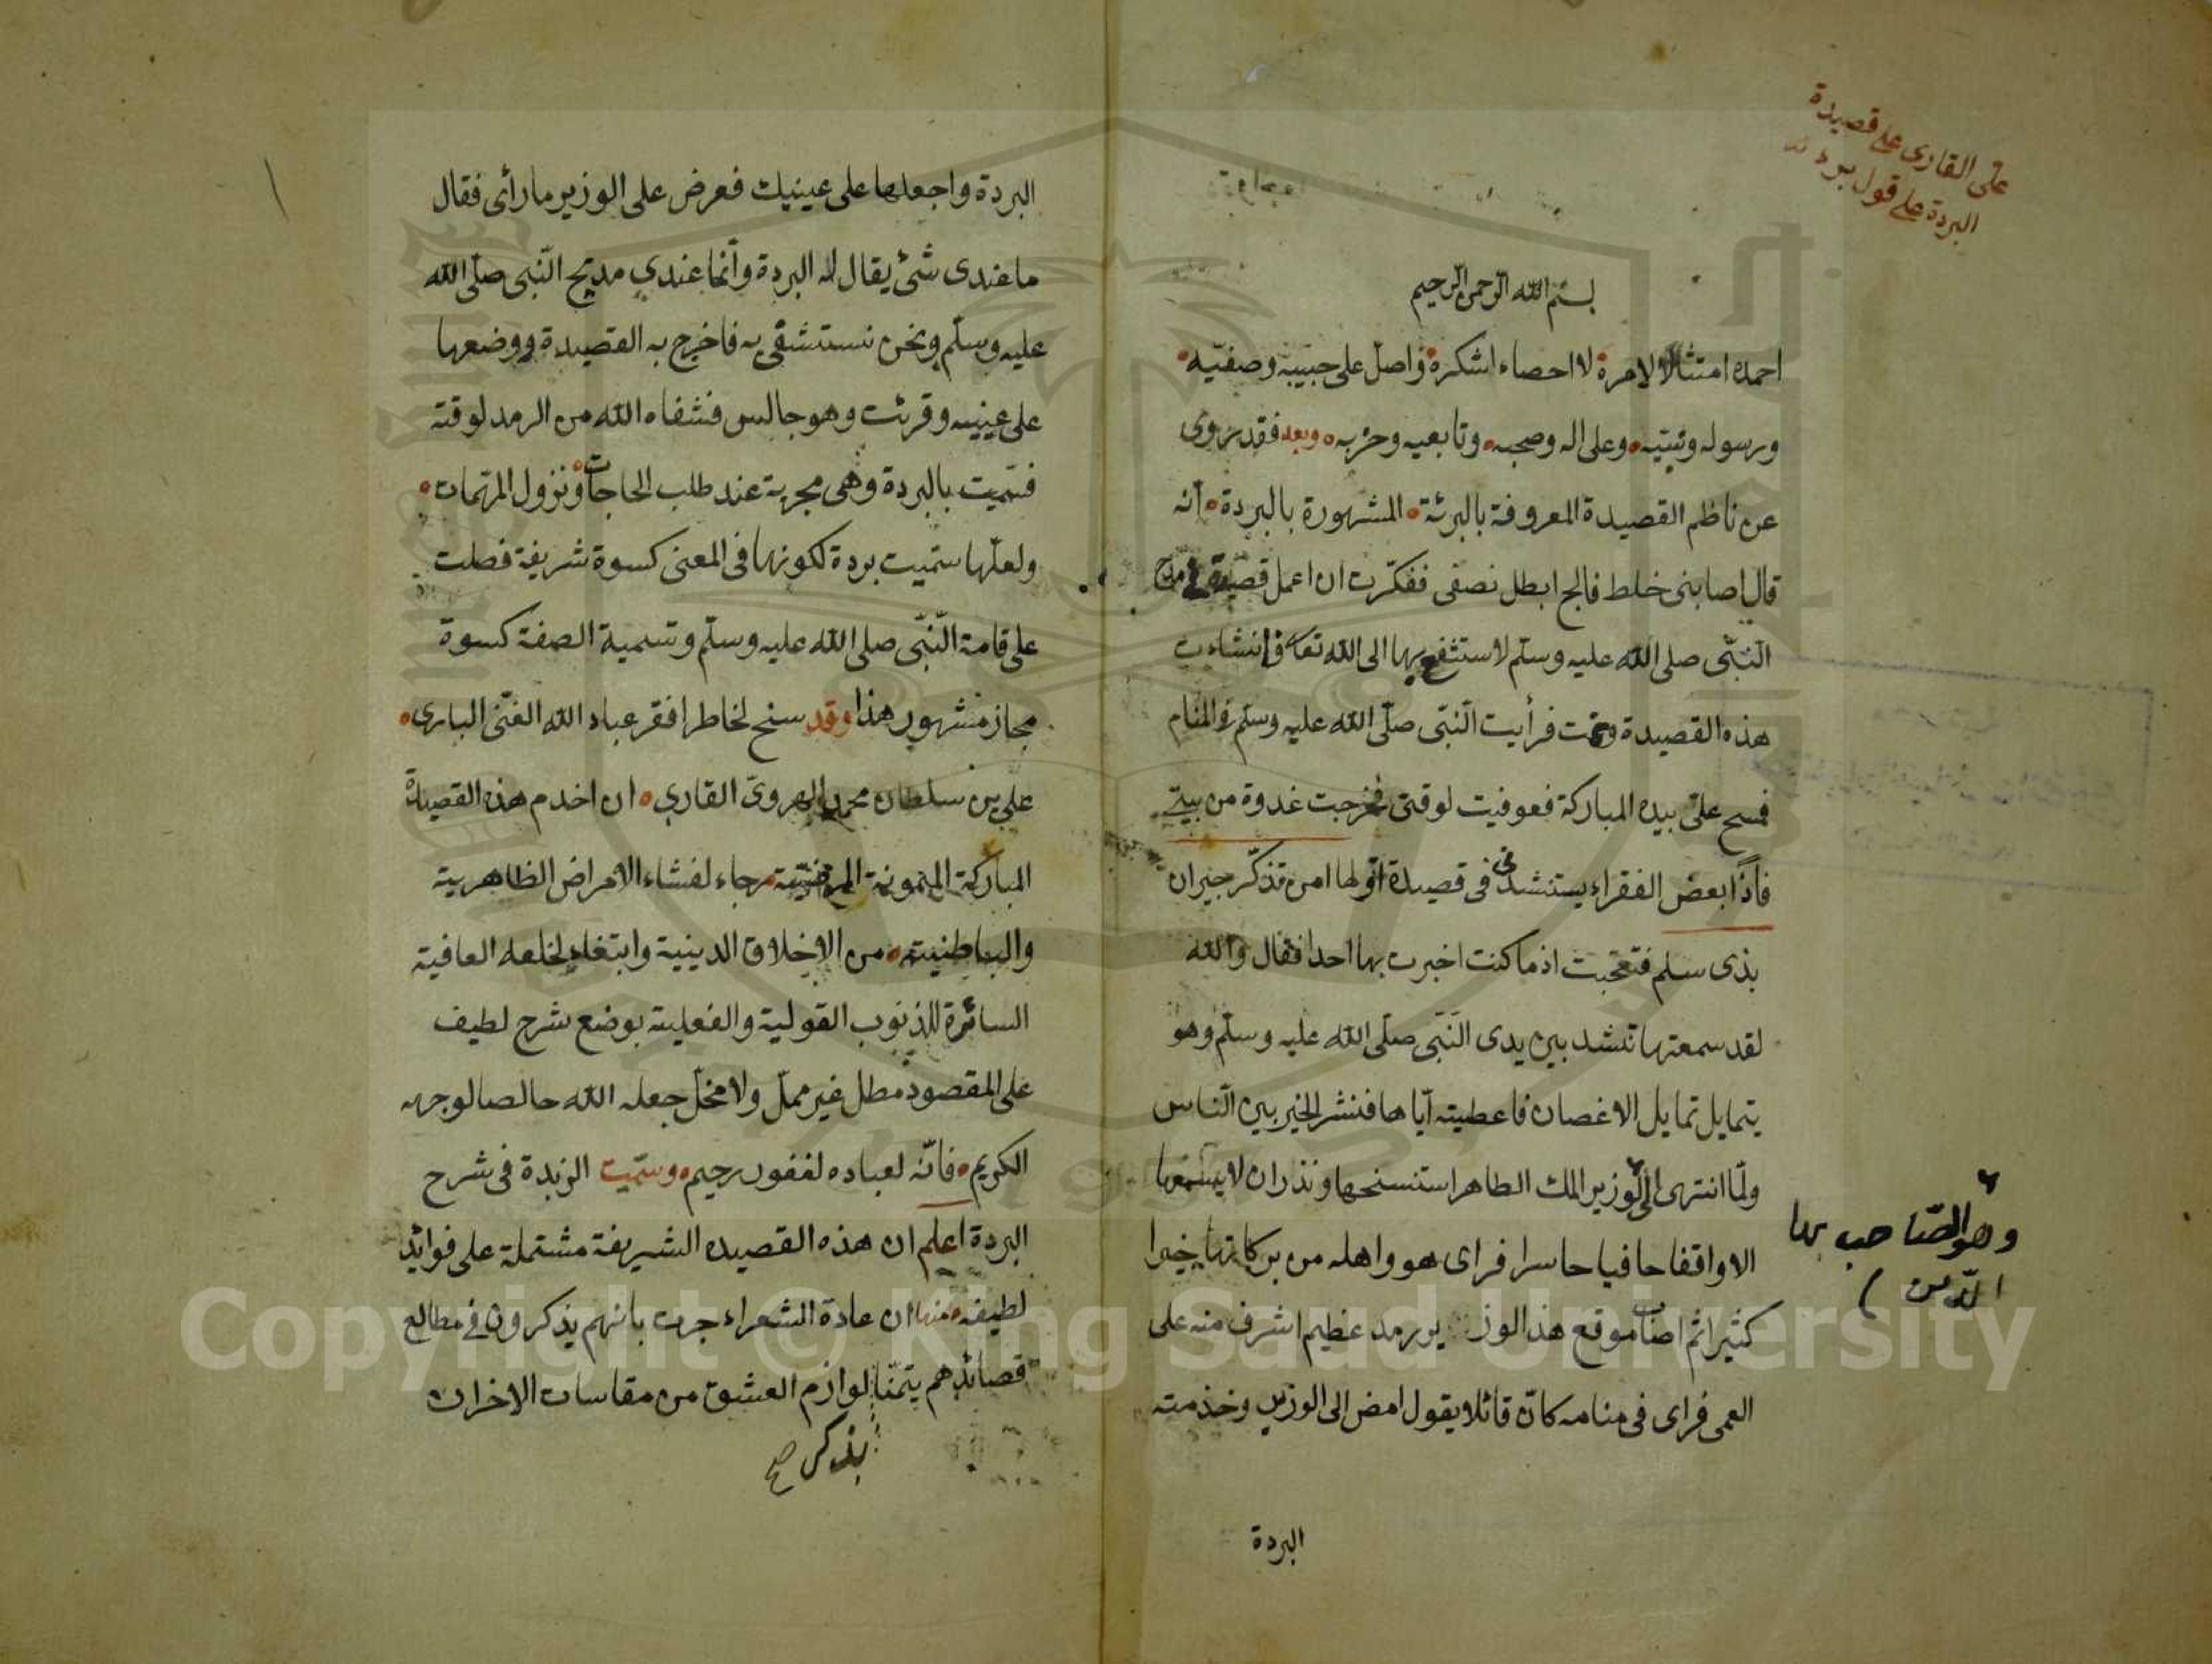 على القارى على قصيدة
البردة على قول برد
بسم الله الرحمن الرحيم
احمده امتثالا لامره لا احصاء اشكره واصل على حبيبه وصفيّه
ورسوله ونبيّه وعلى اله وصحبه وتابعيه وحزبه وبعد فقد روى
عن ناظم القصيدة المعروفة بالبرئة المشهورة بالبردة انه
قال اصابنى خلط فالج ابطل نصفى ففكّرت ان اعمل قصيدة فى مدح
النّبّى صلى الله عليه وسلّم لاستشفع بها الى الله تعا فانشاءت
هذه القصيدة ونمت فرأيت النّبّى صلّى الله عليه وسلّم فى المنام
فمسح علىّ بيده المباركة فعوفيت لوقتى فخرجت غدوة من بيتى
فاذا بعض الفقراء يستنشدنى فى قصيدة اوّلها امن تذكّر جيران
بذى سلم فتعجّبت اذ ما كنت اخبرت بها احدا فقال والله
لقد سمعتها تنشد بين يدى النّبّى صلّى الله عليه وسلّم وهو
يتمايل تمايل الاغصان فاعطيته ايّاها فنشر الخير بين النّاس
ولمّا انتهى الى الوزير الملك الطاهر استنسخها ونذر ان لا يسمعها
وهو الصّاحب بها
الدّين
الا واقفا حافيا حاسرا فراى هو واهله من بركاتها خيرا
كثيرا ثم اصاب موقع هذ الوزير رمد عظيم اشرف منه على
العمى فراى فى منامه كانّ قائلا يقول امض الى الوزير وخذ منه
البردة
البردة واجعلها على عينيك فعرض على الوزير ما رأى فقال
ما عندى شئ يقال له البردة وانّما عندي مديح النّبى صلّى الله
عليه وسلّم ونحن نستشفى به فاخرج به القصيدة ووضعها
على عينيه وقرئت وهو جالس فشفاه الله من الرمد لوقته
فسمّيت بالبردة وهى مجربة عند طلب الحاجات ونزول المهمات
ولعلّها سمّيت بردة لكونها فى المعنى كسوة شريفة فصلت
على قامة النّبّى صلى الله عليه وسلّم وتسمية الصفة كسوة
مجاز مشهور هذا وقد سنح لخاطر افقر عباد الله الغنّى البارى
على بن سلطان محمد الهروىّ القارى ان اخدم هذه القصيدة
المباركة الميمونة المرضيّة رجاء لفشاء الامراض الظاهرية
والباطنيته من الاخلاق الدينية وابتغاء لخلعه العافية
السائرة للذنوب القولية والفعلية بوضع شرح لطيف
على المقصود مطل غير مملّ ولا مخلّ جعله الله حالصا لوجهه
الكريم فانّه لعباده لغفور رحيم وسمّيت الزبدة فى شرح
البردة اعلم ان هذه القصيده الشريفة مشتملة على فوائد
لطيفه منها ان عادة الشعراء جرت بانهم يذكرون فى مطالع
قصائدهم يتمنّا لوازم العشق من مقاسات الاخران
بذكر صح
Copyright © King Saud University